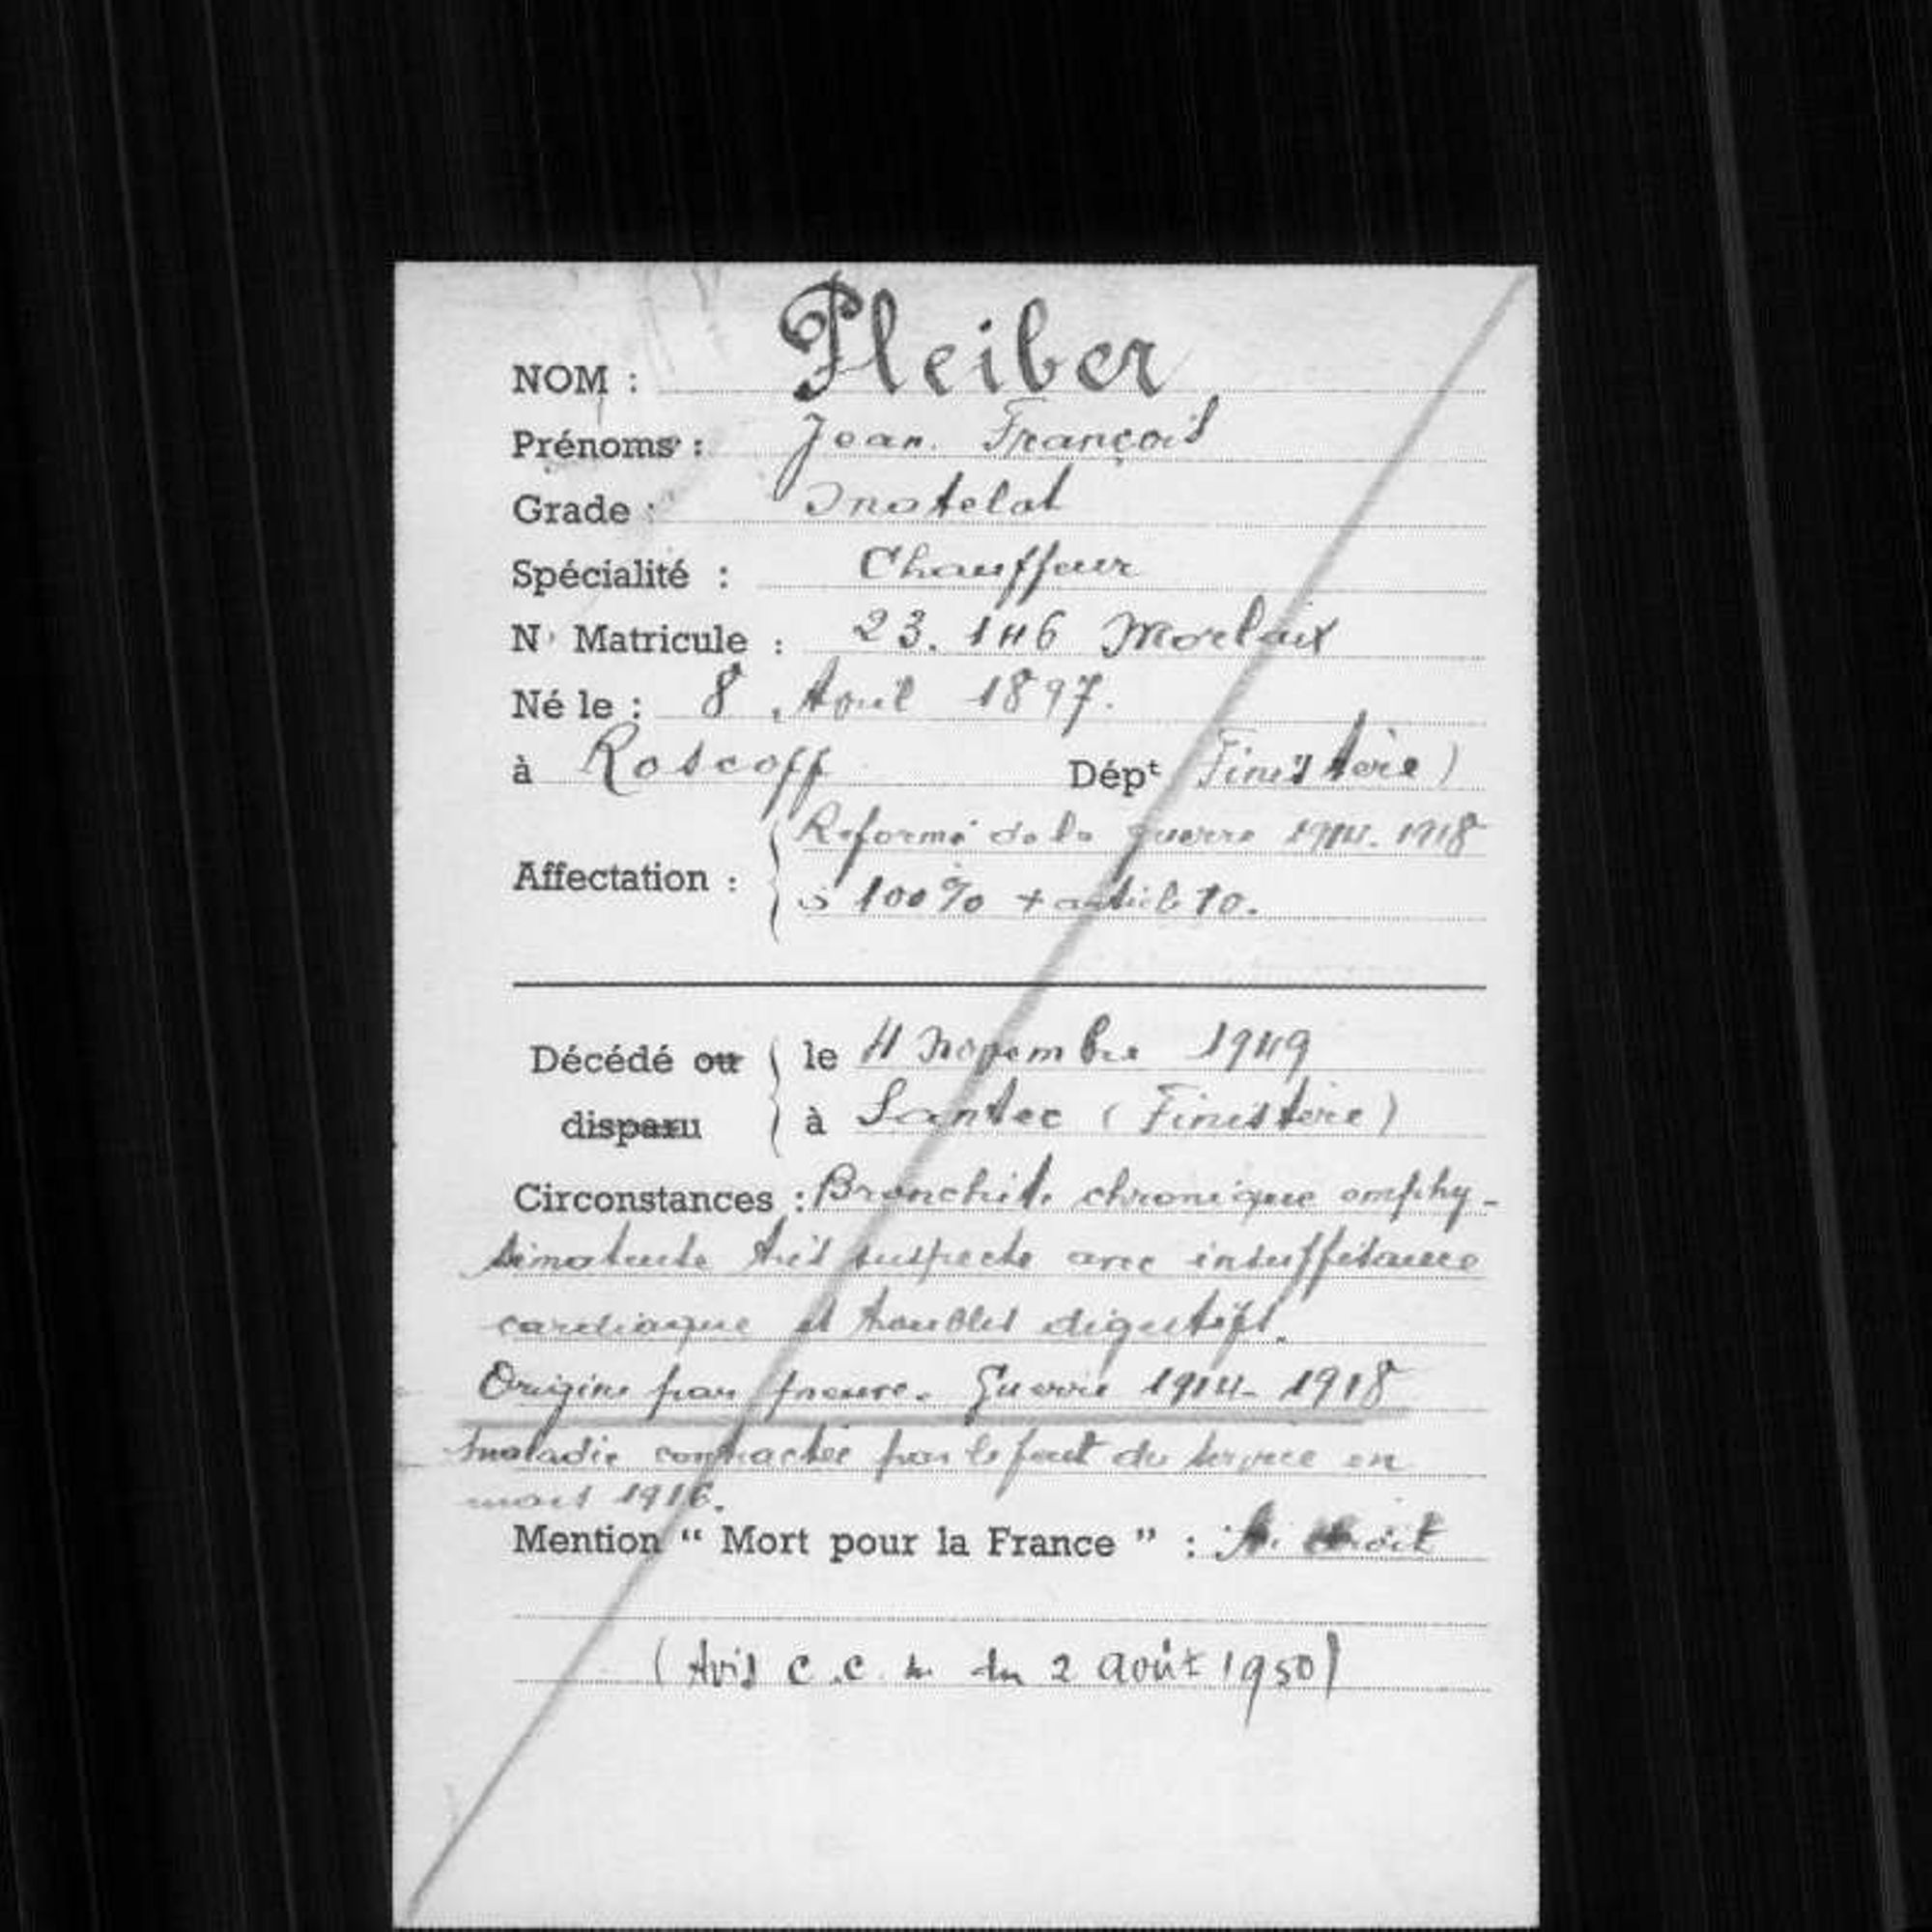 NOM : Pleiber
Prénoms : Jean François
Grade : Matelot
Spécialité : Chauffeur
N° Matricule : 23.146 Morlaix
Né le : 8 Août 1897.
à Roscoff Dépt Finistère)
Réformé de la guerre 1914.1918
Affectation :
à 100% + article 10.
Décédé ou le 4 Novembre 1949
disparu à Santec (Finistère)
Circonstances : Bronchite chronique emphy-
sémateuse très suspecte avec insuffisance
cardiaque et troubles digestifs.
Origine par preuve. Guerre 1914-1918
maladie contractée par le fait du service en
mars 1916.
Mention “ Mort pour la France ” : droit
(Avis C.C. du 2 août 1950)